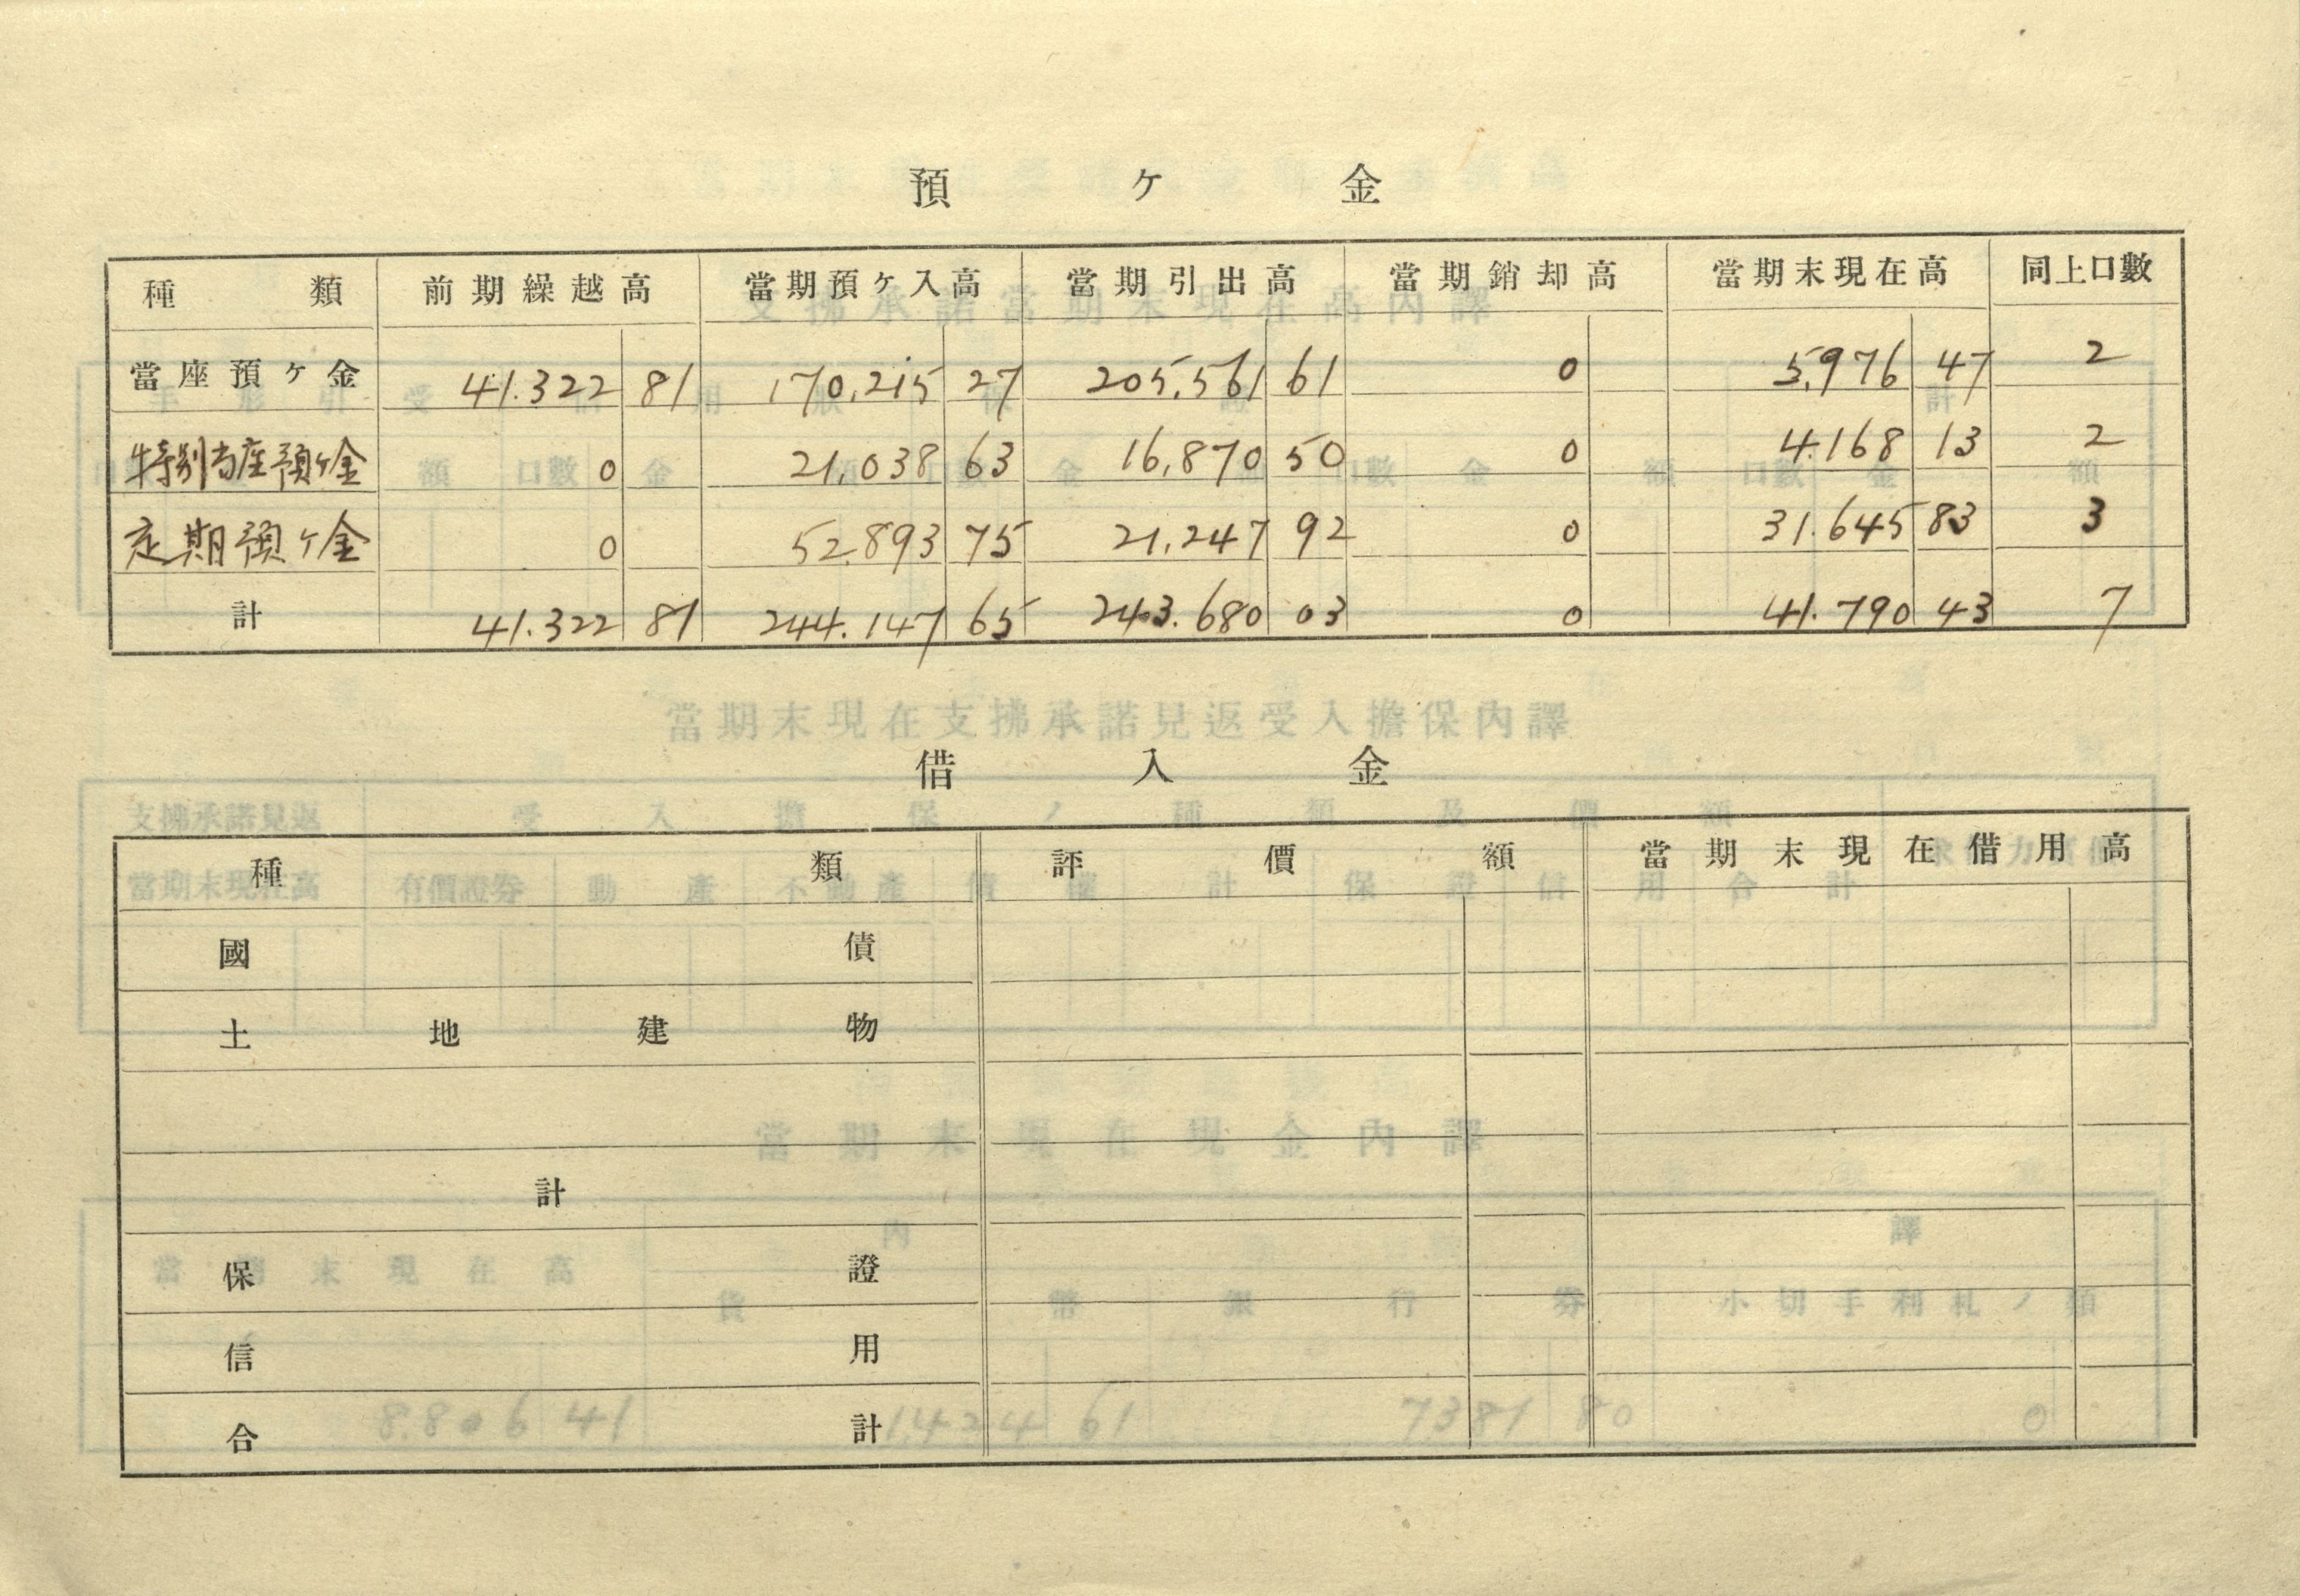 預ケ金
種類 前期繰越高 當期預ヶ入高 當期引出高 當期銷却高 當期末現在高 同上口數
當座預ヶ金 41.322 81 170,215 27 205,561 61 0 5,976 47 2
特別当座預ヶ金 0 21,038 63 16,870 50 0 4.168 13 2
定期預ヶ金 0 52.893 75 21,247 92 0 31.645 83 3
計 41.322 81 244.147 65 243.680 03 0 41.790 43 7
借入金
種類 評價額 當期末現在借用高
國債
土地建物
計
保證
信用
合計